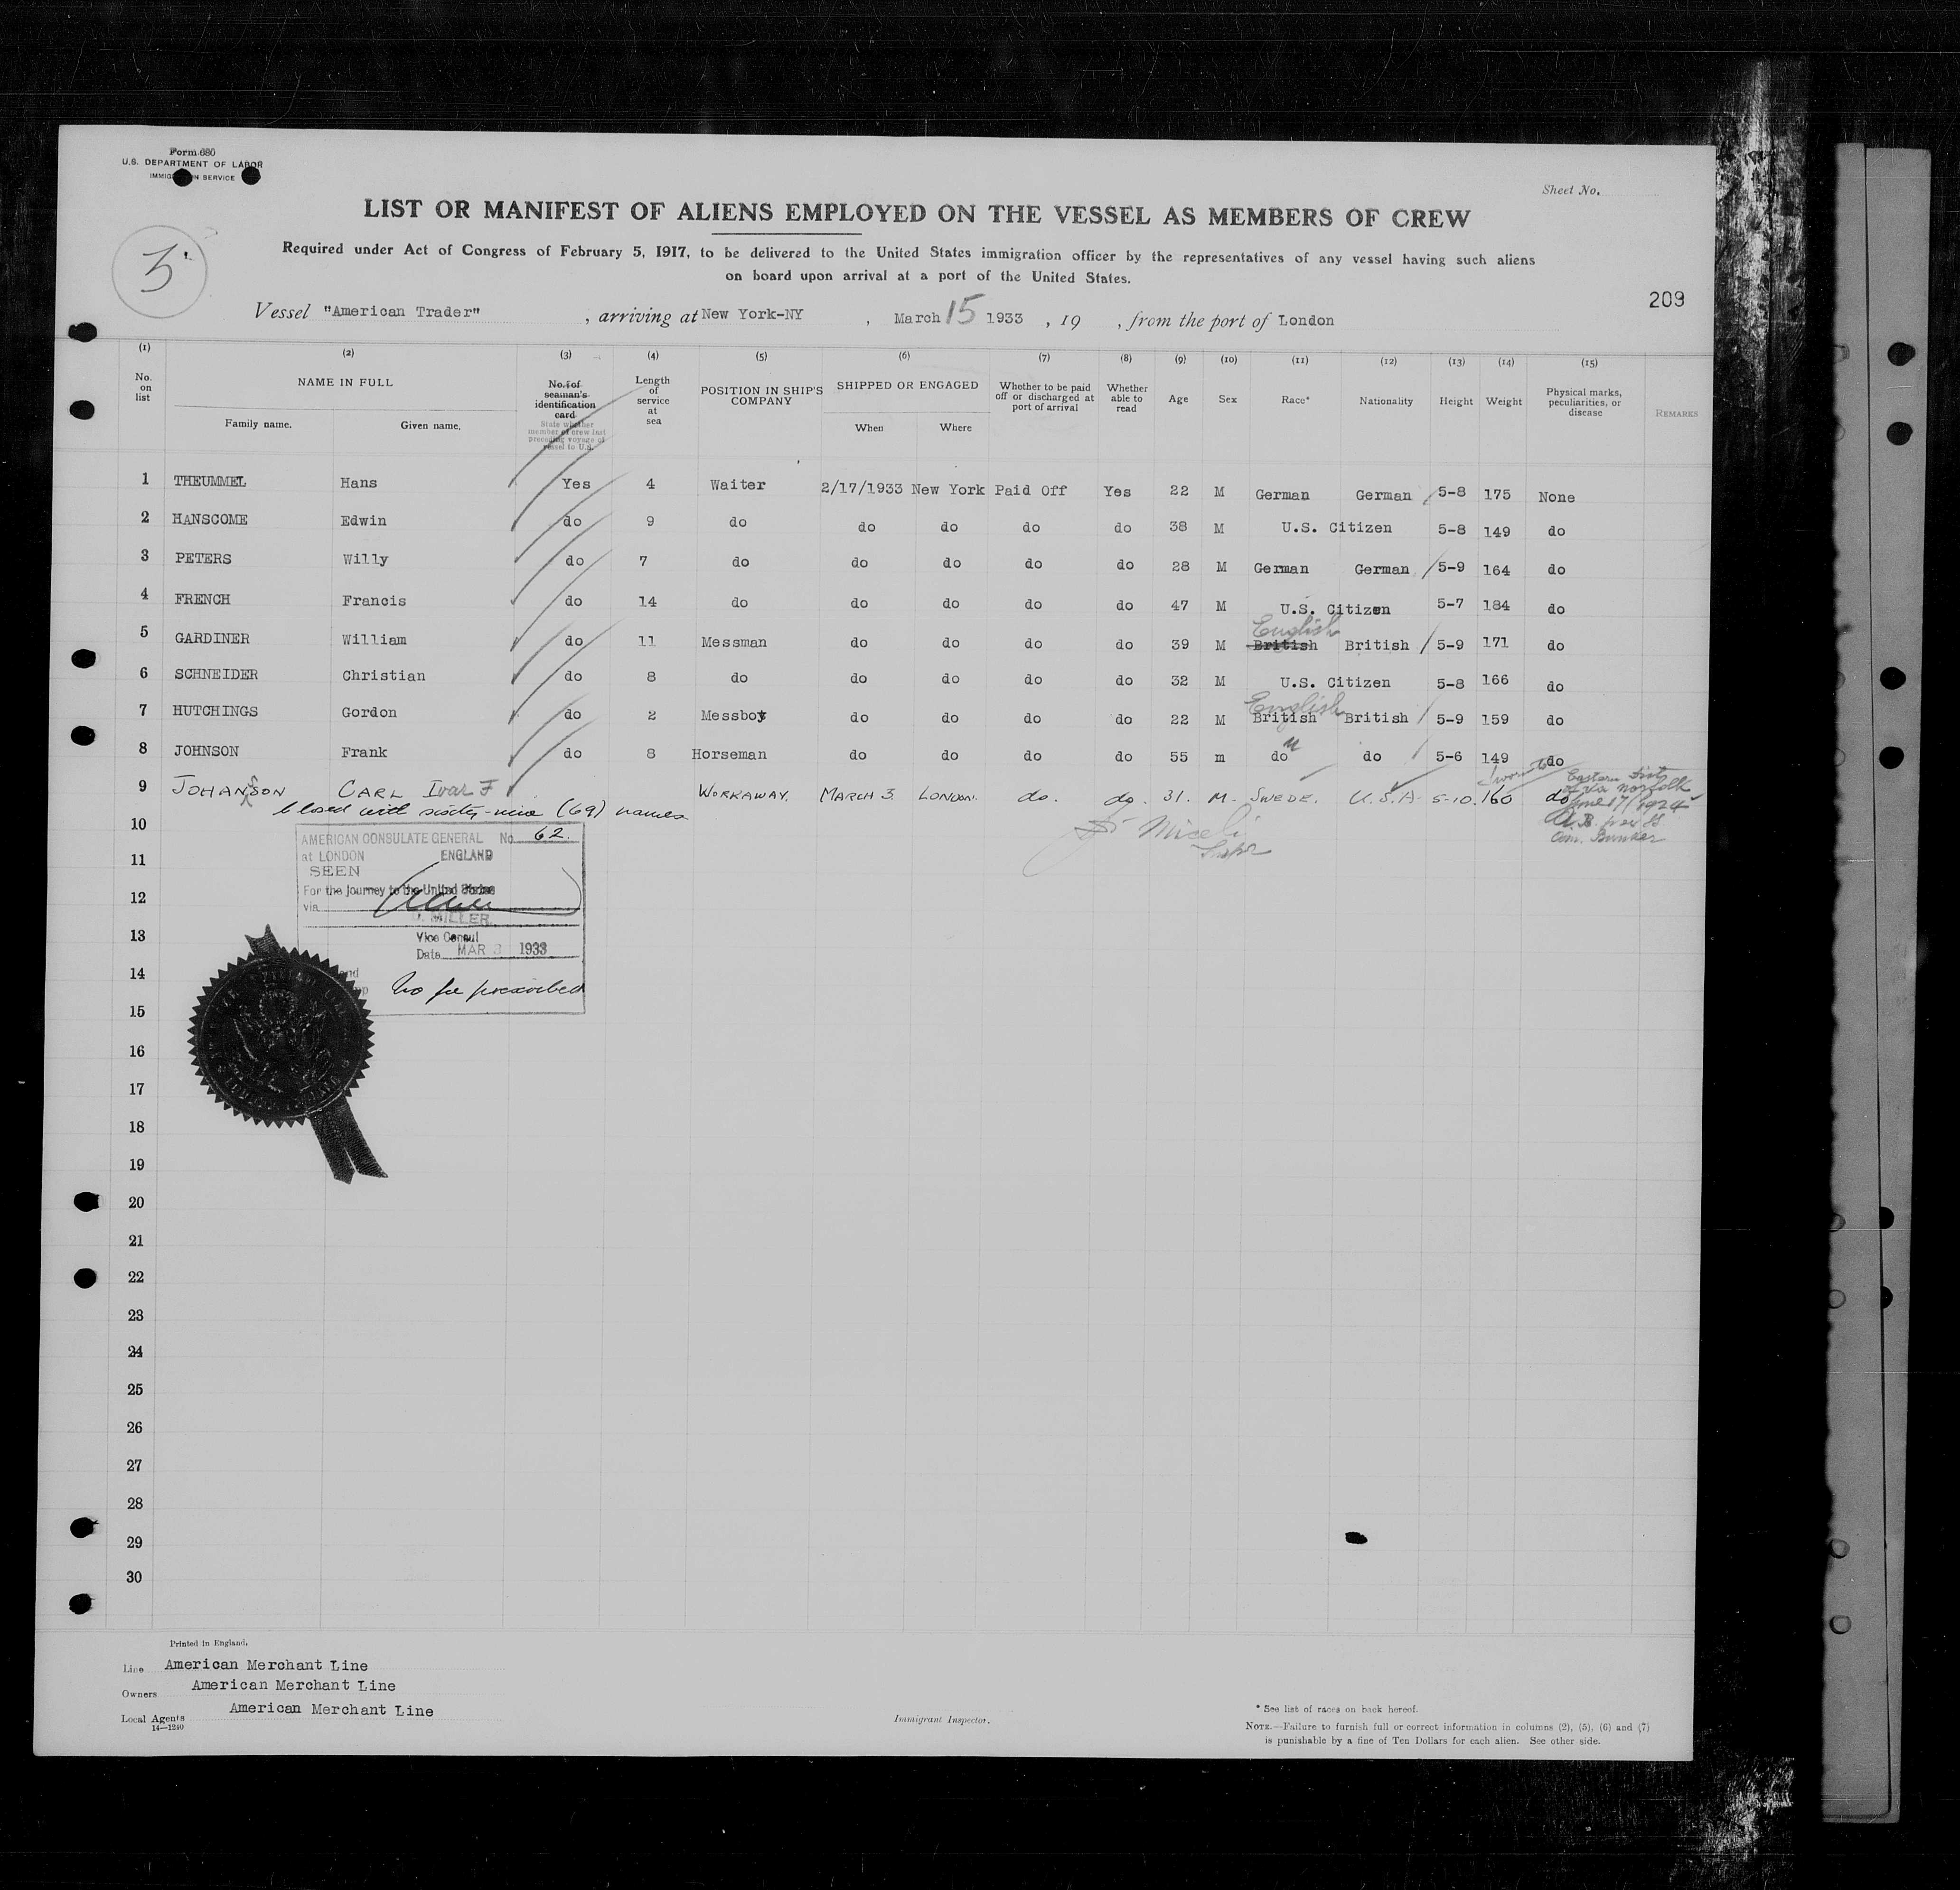 Form 680
U.S. DEPARTMENT OF LABOR
IMMIGRATION SERVICE
Sheet No.
LIST OR MANIFEST OF ALIENS EMPLOYED ON THE VESSEL AS MEMBERS OF CREW
Required under Act of Congress of February 5, 1917, to be delivered to the United States immigration officer by the representatives of any vessel having such aliens
on board upon arrival at a port of the United States.
209
Vessel "American Trader" , arriving at New York-NY , March 15 1933 , 19 , from the port of London
(1) (2) (3) (4) (5) (6) (7) (8) (9) (10) (11) (12) (13) (14) (15)
No. on list
NAME IN FULL
Family name. Given name.
No. of seaman's identification card
State whether member of crew last preceding voyage of vessel to U.S.
Length of service at sea
POSITION IN SHIP'S COMPANY
SHIPPED OR ENGAGED
When Where
Whether to be paid off or discharged at port of arrival
Whether able to read
Age Sex Race* Nationality Height Weight
Physical marks, peculiarities, or disease
REMARKS
1 THEUMMEL Hans Yes 4 Waiter 2/17/1933 New York Paid Off Yes 22 M German German 5-8 175 None
2 HANSCOME Edwin do 9 do do do do do 38 M U.S. Citizen 5-8 149 do
3 PETERS Willy do 7 do do do do do 28 M German German 5-9 164 do
4 FRENCH Francis do 14 do do do do do 47 M U.S. Citizen 5-7 184 do
English
5 GARDINER William do 11 Messman do do do do 39 M British British 5-9 171 do
6 SCHNEIDER Christian do 8 do do do do do 32 M U.S. Citizen 5-8 166 do
English
7 HUTCHINGS Gordon do 2 Messboy do do do do 22 M British British 5-9 159 do
8 JOHNSON Frank do 8 Horseman do do do do 55 m do " do 5-6 149 do
9 JOHANSSON CARL Ivar F WORKAWAY. MARCH 3. LONDON. do. do. 31. M. SWEDE. U.S.A. 5-10. 160 do
Eastern Dist
of Va Norfolk
June 17/1924
closed with sixty-nine (69) names
10
AMERICAN CONSULATE GENERAL No. 62.
at LONDON ENGLAND
SEEN
For the journey to the United States
via
MILLER
Vice Consul
Date MAR 3 1933
No fee prescribed
11
12
13
14
15
16
17
18
19
20
21
22
23
24
25
26
27
28
29
30
Printed in England.
Line American Merchant Line
Owners American Merchant Line
Local Agents American Merchant Line
14—1240
Immigrant Inspector.
* See list of races on back hereof.
NOTE.—Failure to furnish full or correct information in columns (2), (5), (6) and (7)
is punishable by a fine of Ten Dollars for each alien. See other side.